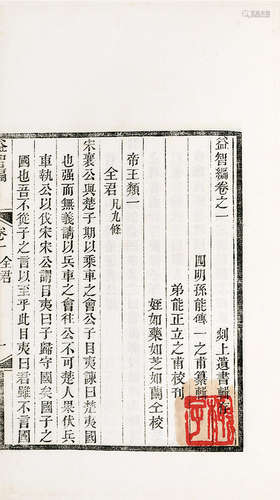 益智編卷之一
剡上遺書
明孫能傳一之甫纂輯
弟能正立之甫校刊
姪如藥如芝如蘭仝校
帝王類一
全君凡九條
宋襄公與楚子期以乘車之會公子目夷諫曰楚夷國
也强而無義請以兵車之會往公不可楚人果伏兵
車執公以伐宋宋公謂目夷曰子歸守國矣國子之
國也吾不從子之言以至乎此目夷曰君雖不言國
益智編 卷一 全君 一